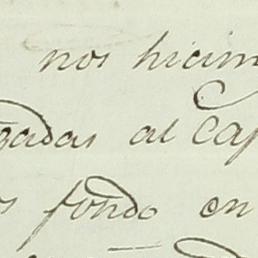 nos hicim
gadas al Cap
s fondo en